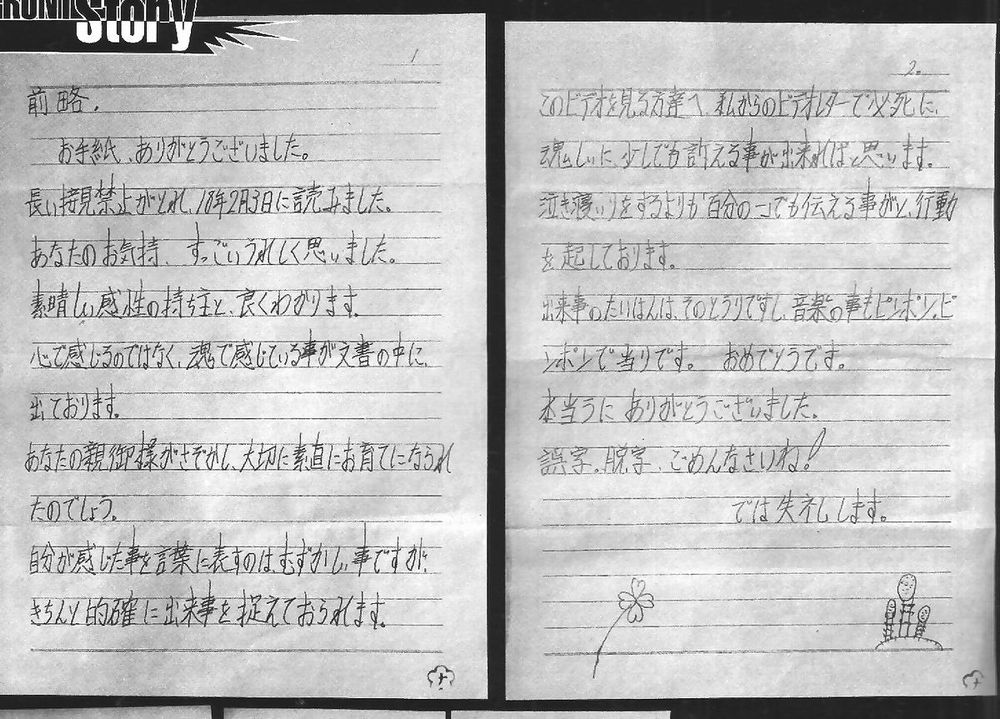 FRONT
Story
1
前略、
お手紙、ありがとうございました。
長い接見禁止がとれ、18年2月3日に読みました。
あなたのお気持、すっごいうれしく思いました。
素晴しい感性の持ち主と、良くわかります。
心で感じるのではなく、魂で感じている事が文書の中に、
出ております。
あなたの親御様がさぞかし、大切に素直にお育てになられ
たのでしょう。
自分が感じた事を言葉に表すのは、むずかしい事ですが、
きちんと的確に出来事を捉えておられます。
2.
このビデオを見る方達へ 私からのビデオレターで必死に、
魂しいに、少しでも訴える事が出来ればと思います。
泣き寝いりをするよりも百分の一でも伝える事がと、行動
を起しております。
出来事のたいはんは、そのとうりですし、音楽の事もピンポン、ピ
ンポンで当りです。 おめでとうです。
本当うに ありがとうございました。
誤字、脱字、ごめんなさいね!
では失礼します。